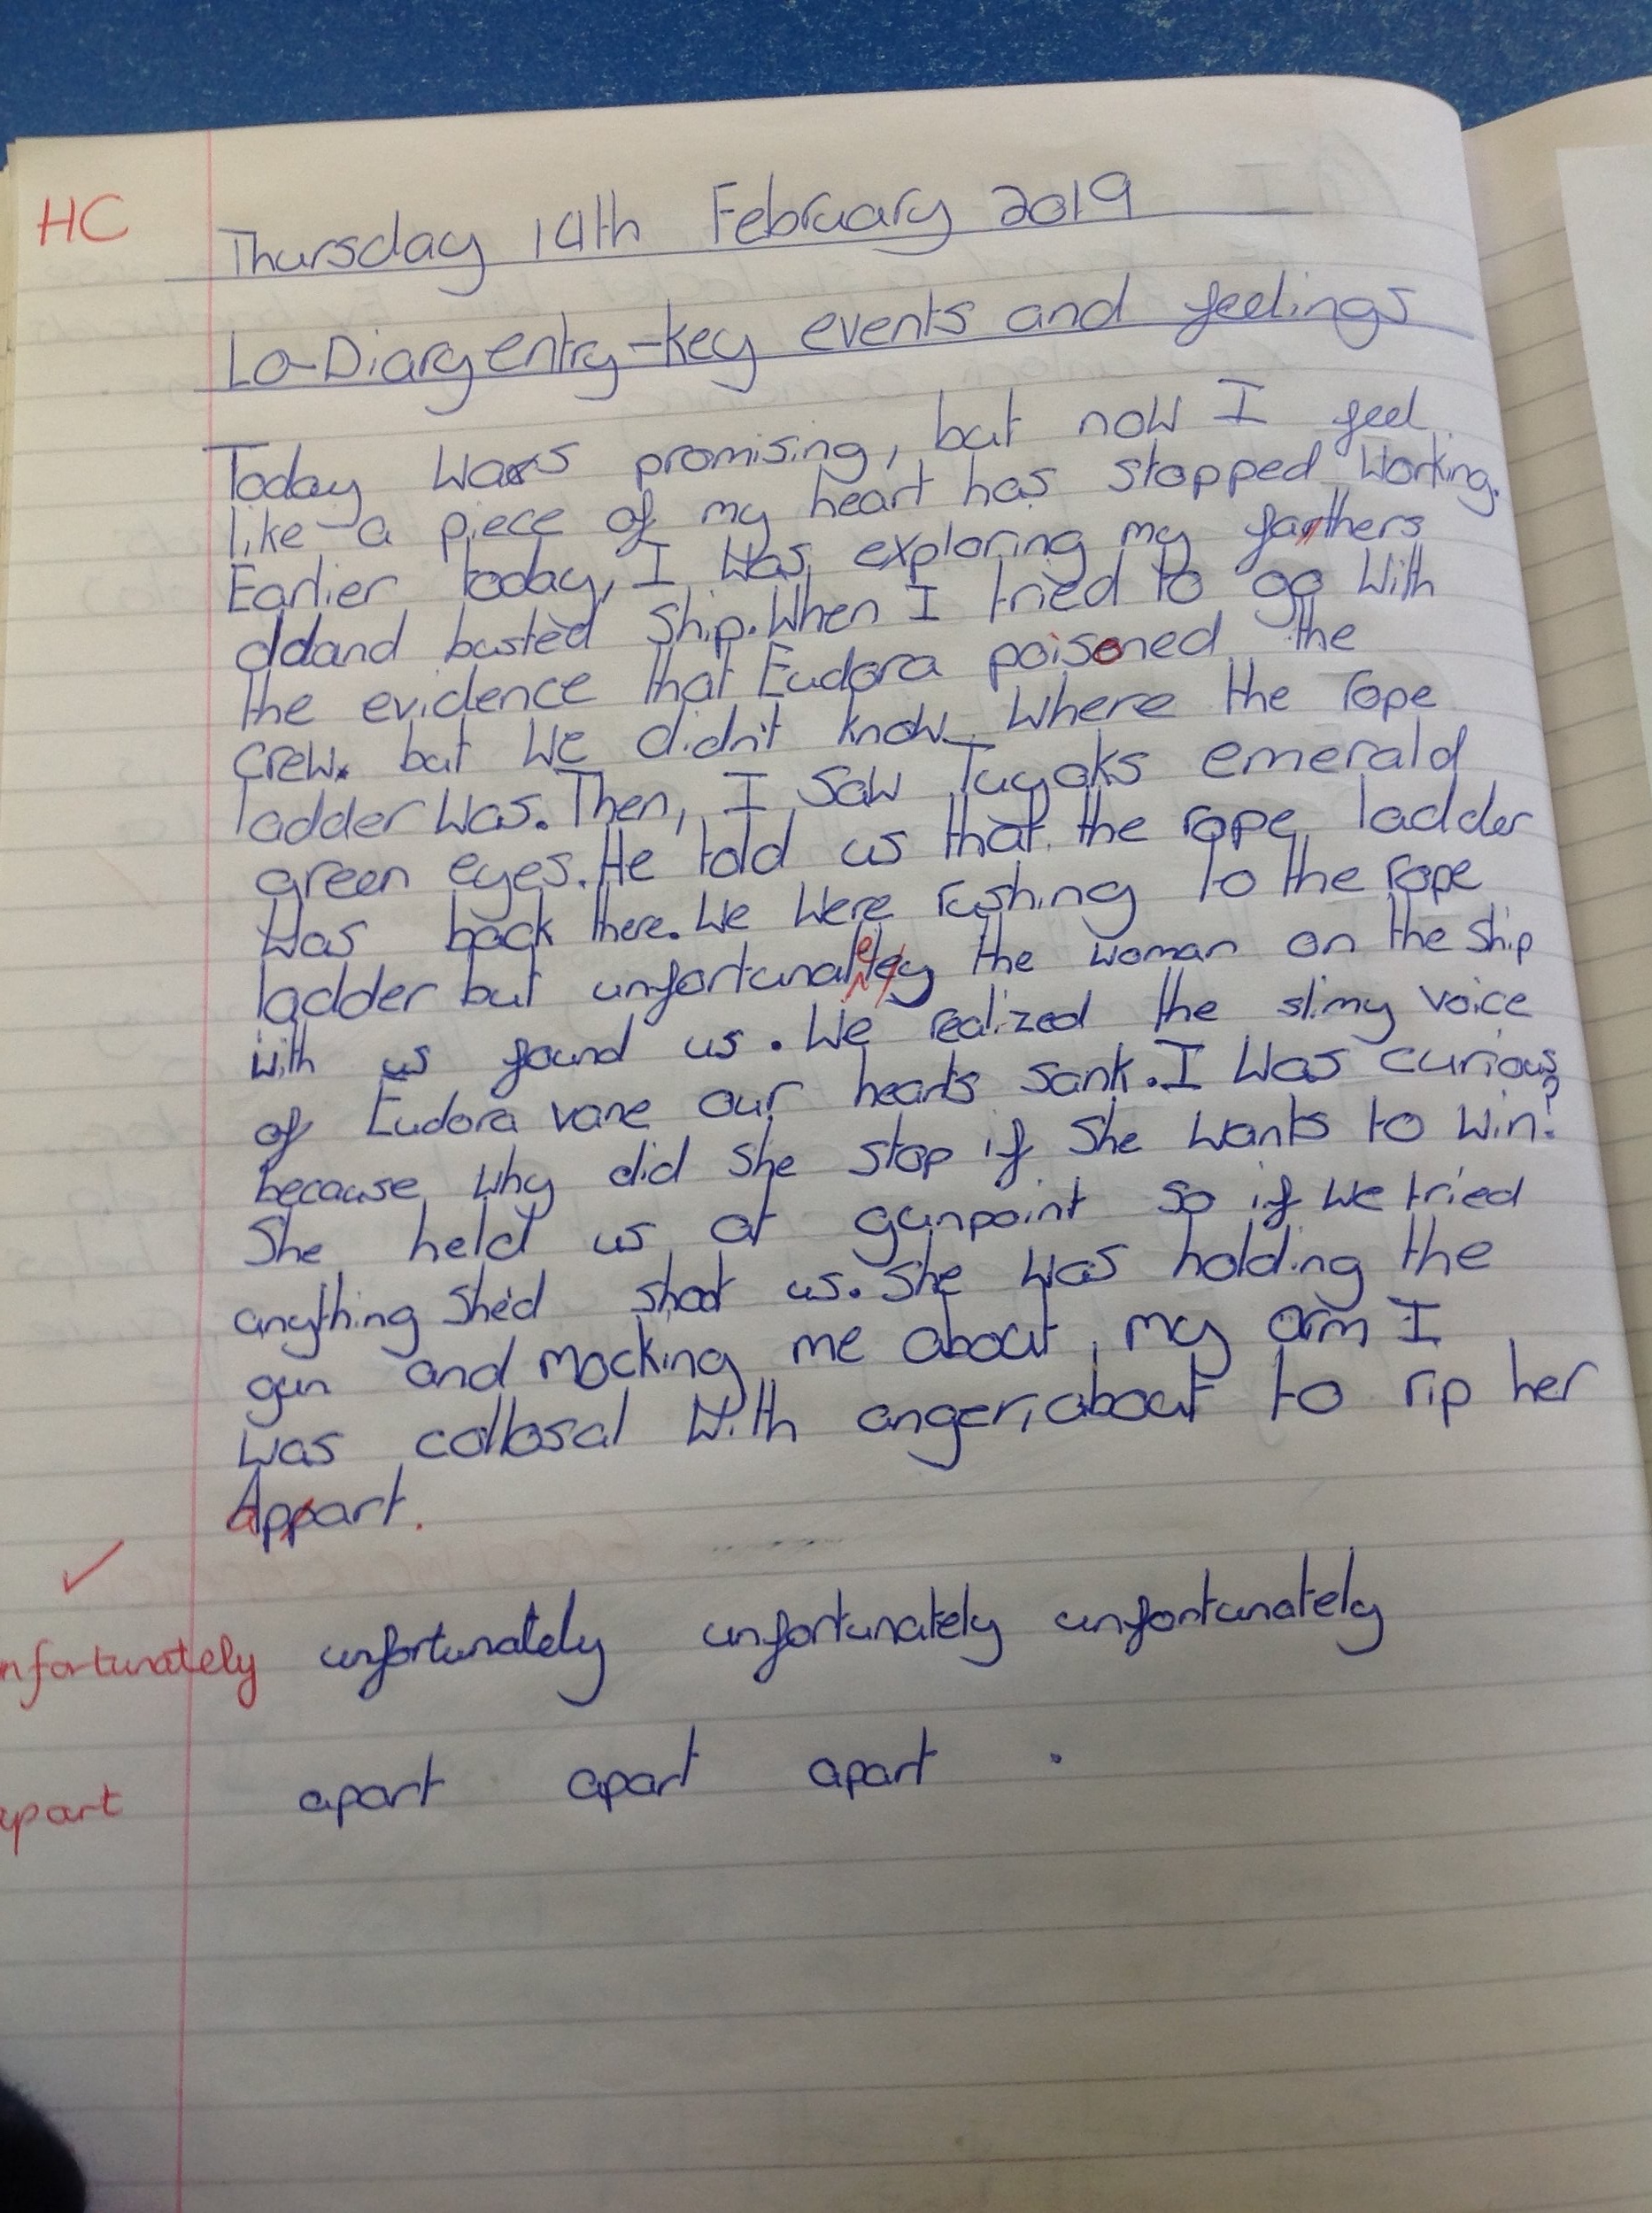 HC
Thursday 14th February 2019
Lo-Diary entry-key events and feelings
Today was promising, but now I feel
like a piece of my heart has stopped working.
Earlier today, I was exploring my fathers
old and busted ship. When I tried to go with
the evidence that Eudora poisoned the
crew. but we didn't know where the rope
ladder was. Then, I saw Tuyoks emerald
green eyes. He told us that the rope ladder
was back there. We were rushing to the rope
ladder but unfortunately the woman on the ship
with us found us. We realized the slimy voice
of Eudora vane our hearts sank. I was curious
because why did she stop if she wants to win?
She held us at gunpoint so if we tried
anything she'd shoot us. She was holding the
gun and mocking me about my arm I
was collosal with anger, about to rip her
Appart.
nfortunately unfortunately unfortunately unfortunately
apart apart apart apart